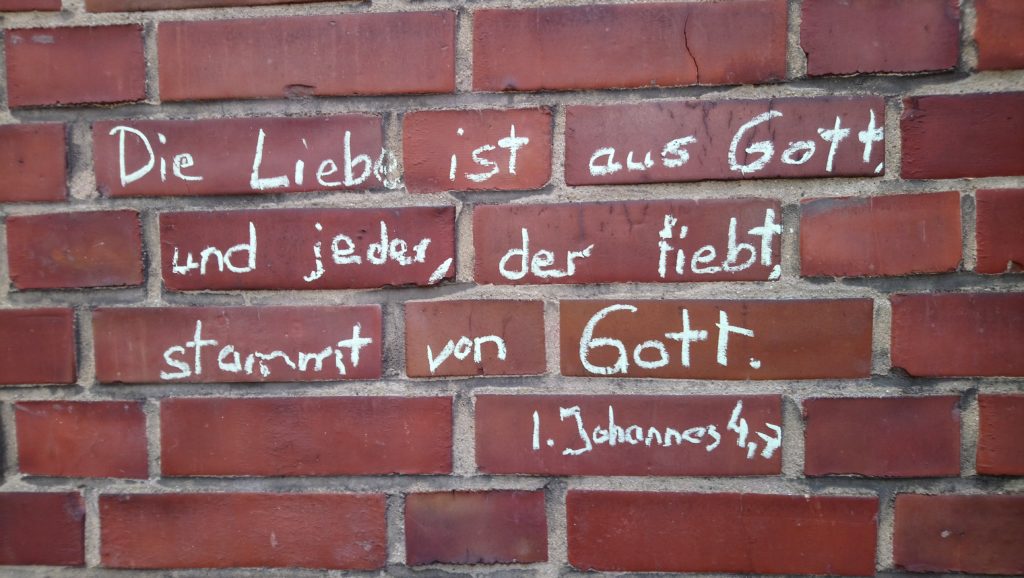 Die Liebe ist aus Gott,
und jeder, der liebt,
stammt von Gott.
1. Johannes 4,7